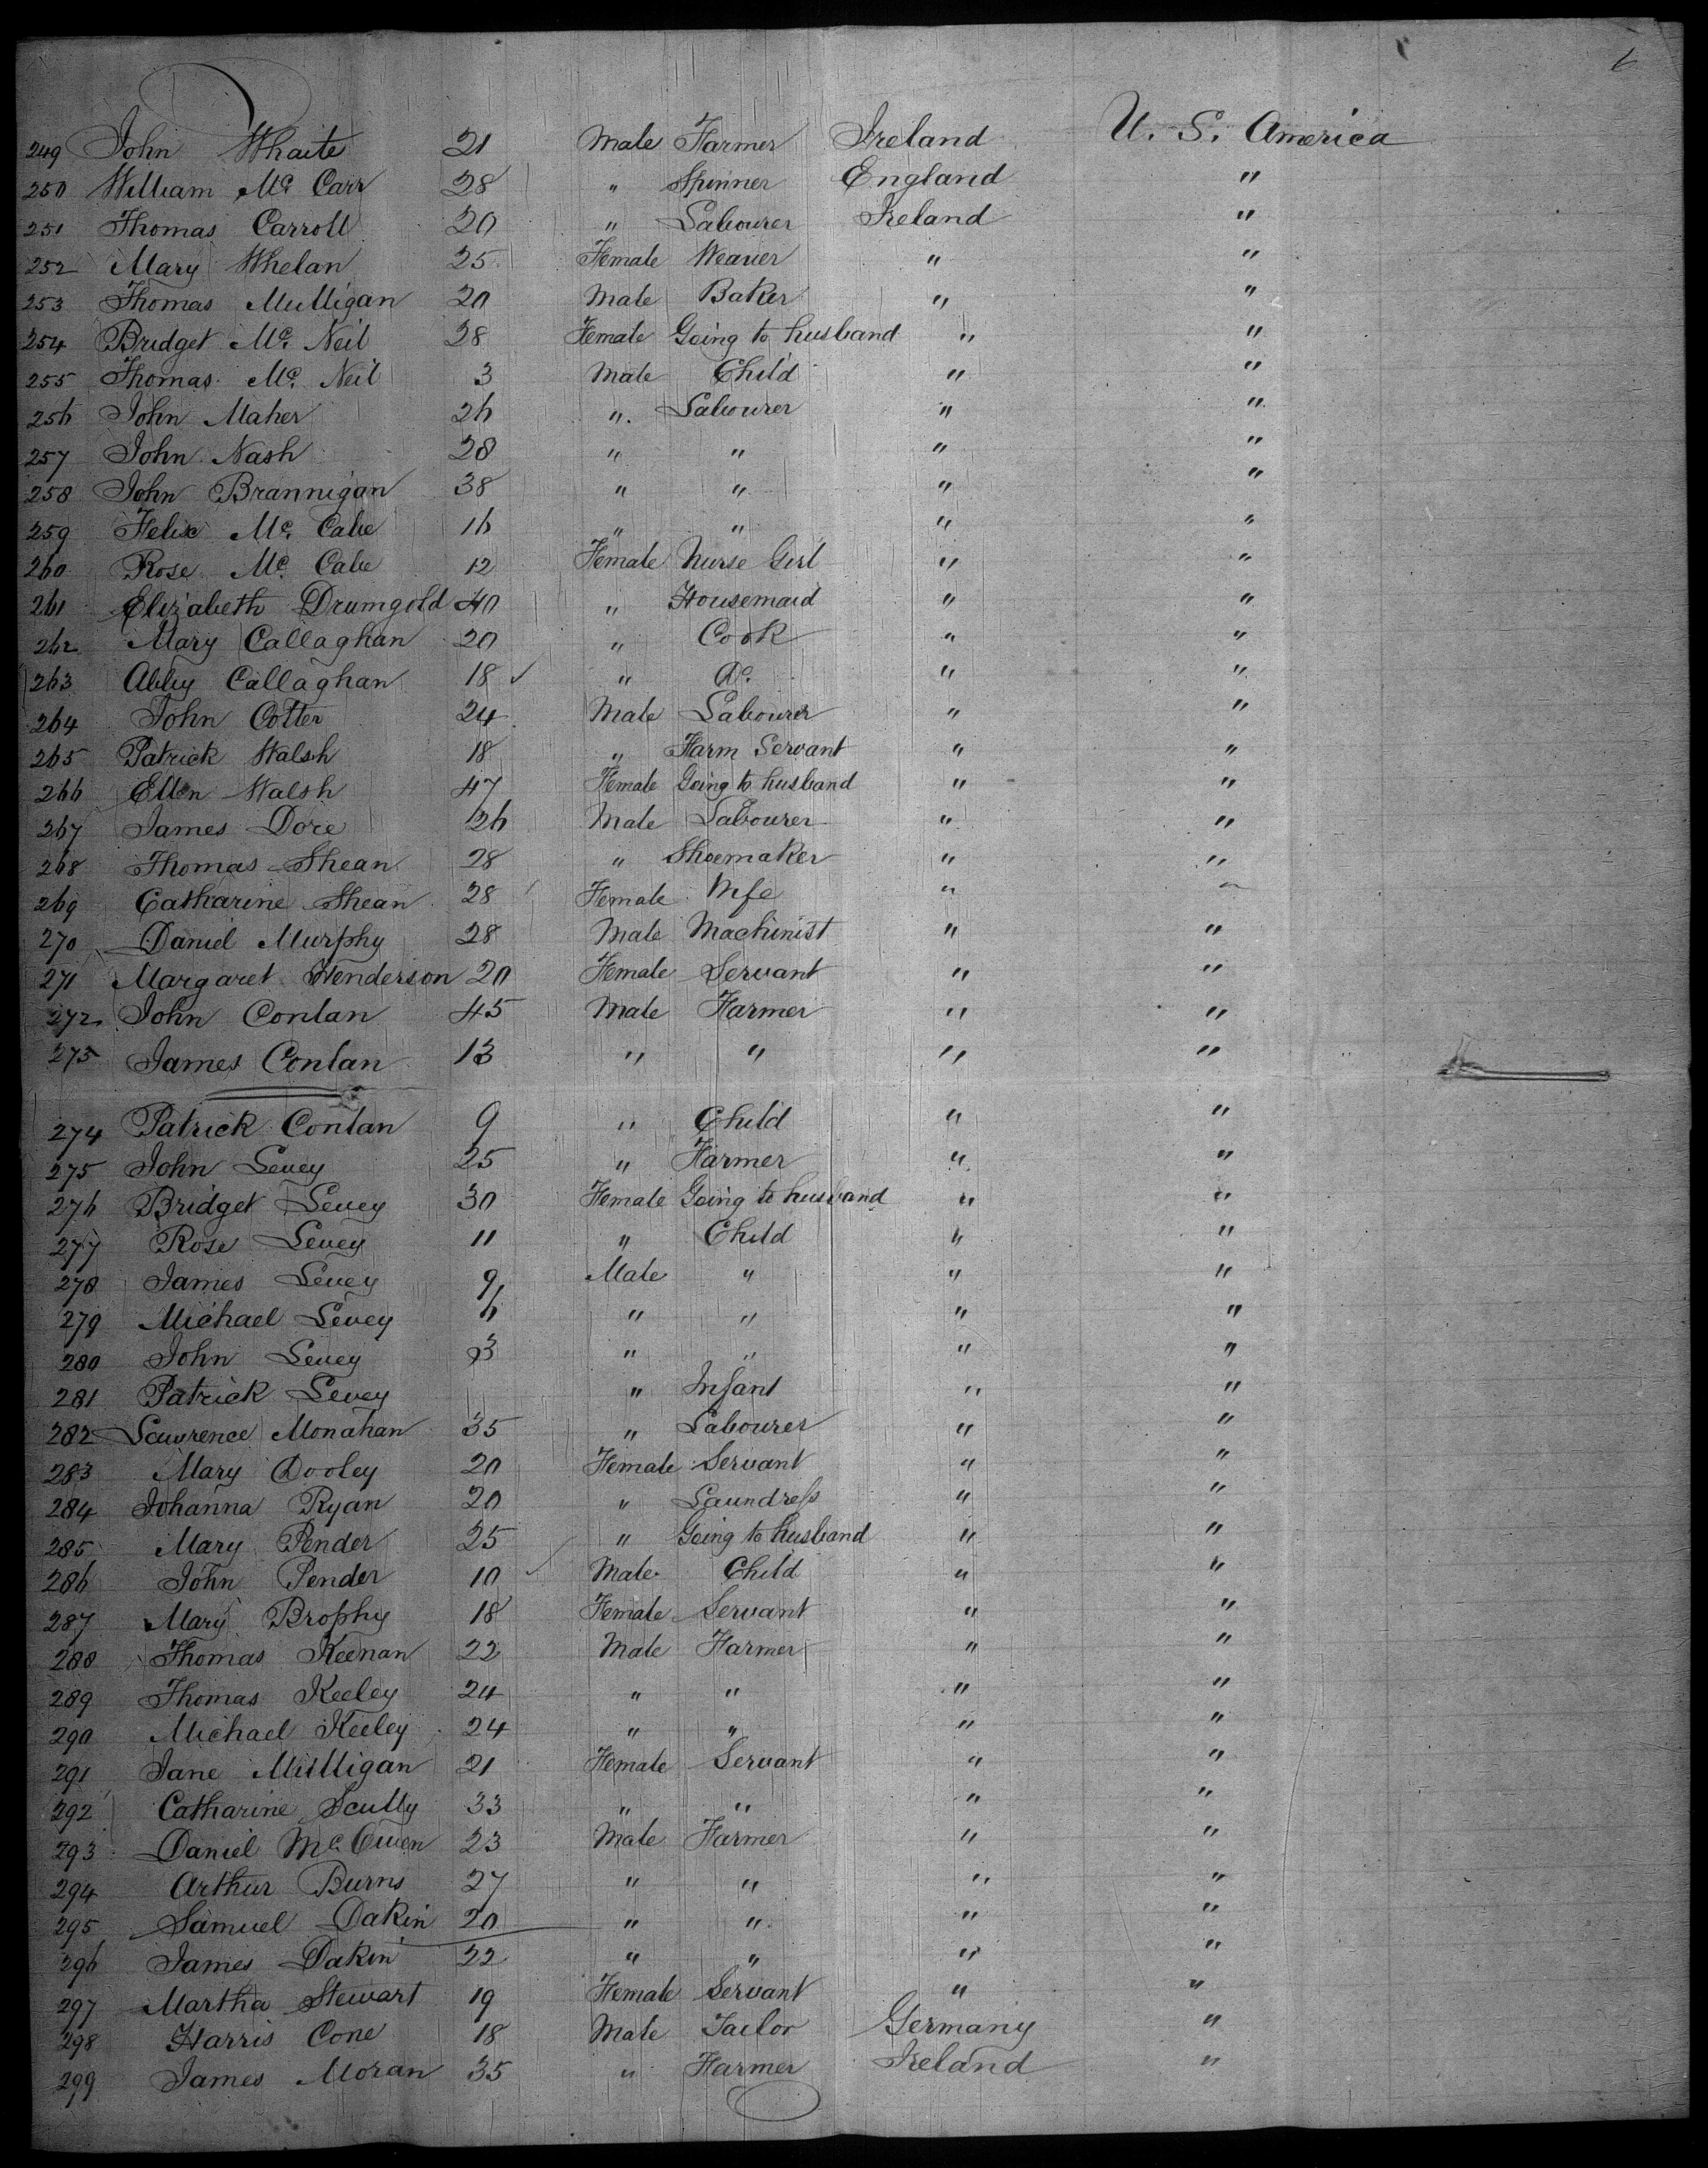 249 John Whaite 21 Male Farmer Ireland U. S. America
250 William Mc Carr 28 " Spinner England "
251 Thomas Carroll 20 " Labourer Ireland "
252 Mary Whelan 25 Female Weaver " "
253 Thomas Mulligan 20 Male Baker " "
254 Bridget Mc. Neil 28 Female Going to husband " "
255 Thomas Mc. Neil 3 Male Child " "
256 John Maher 26 " Labourer " "
257 John Nash 28 " " " "
258 John Brannigan 38 " " " "
259 Felix Mc. Cabe 16 " " " "
260 Rose Mc. Cabe 12 Female Nurse Girl " "
261 Elizabeth Drumgold 40 " Housemaid " "
262 Mary Callaghan 20 " Cook " "
263 Abby Callaghan 18 " Do. " "
264 John Cotter 24 Male Labourer " "
265 Patrick Walsh 18 " Farm Servant " "
266 Ellen Walsh 47 Female Going to husband " "
267 James Dore 26 Male Labourer " "
268 Thomas Shean 28 " Shoemaker " "
269 Catharine Shean 28 Female Wife " "
270 Daniel Murphy 28 Male Machinist " "
271 Margaret Henderson 20 Female Servant " "
272 John Conlan 45 Male Farmer " "
273 James Conlan 13 " " " "
274 Patrick Conlan 9 " Child " "
275 John Levey 25 " Farmer " "
276 Bridget Levey 30 Female Going to husband " "
277 Rose Levey 11 " Child " "
278 James Levey 9 Male " " "
279 Michael Levey 6 " " " "
280 John Levey 3 " " " "
281 Patrick Levey " Infant " "
282 Lawrence Monahan 35 " Labourer " "
283 Mary Dooley 20 Female Servant " "
284 Johanna Ryan 20 " Laundress " "
285 Mary Pender 25 " Going to husband " "
286 John Pender 10 Male Child " "
287 Mary Brophy 18 Female Servant " "
288 Thomas Keenan 22 Male Farmer " "
289 Thomas Keeley 24 " " " "
290 Michael Keeley 24 " " " "
291 Jane Mulligan 21 Female Servant " "
292 Catharine Scully 33 " " " "
293 Daniel Mc. Owen 23 Male Farmer " "
294 Arthur Burns 27 " " " "
295 Samuel Dakin 20 " " " "
296 James Dakin 22 " " " "
297 Martha Stewart 19 Female Servant " "
298 Harris Cone 18 Male Tailor Germany "
299 James Moran 35 " Farmer Ireland "